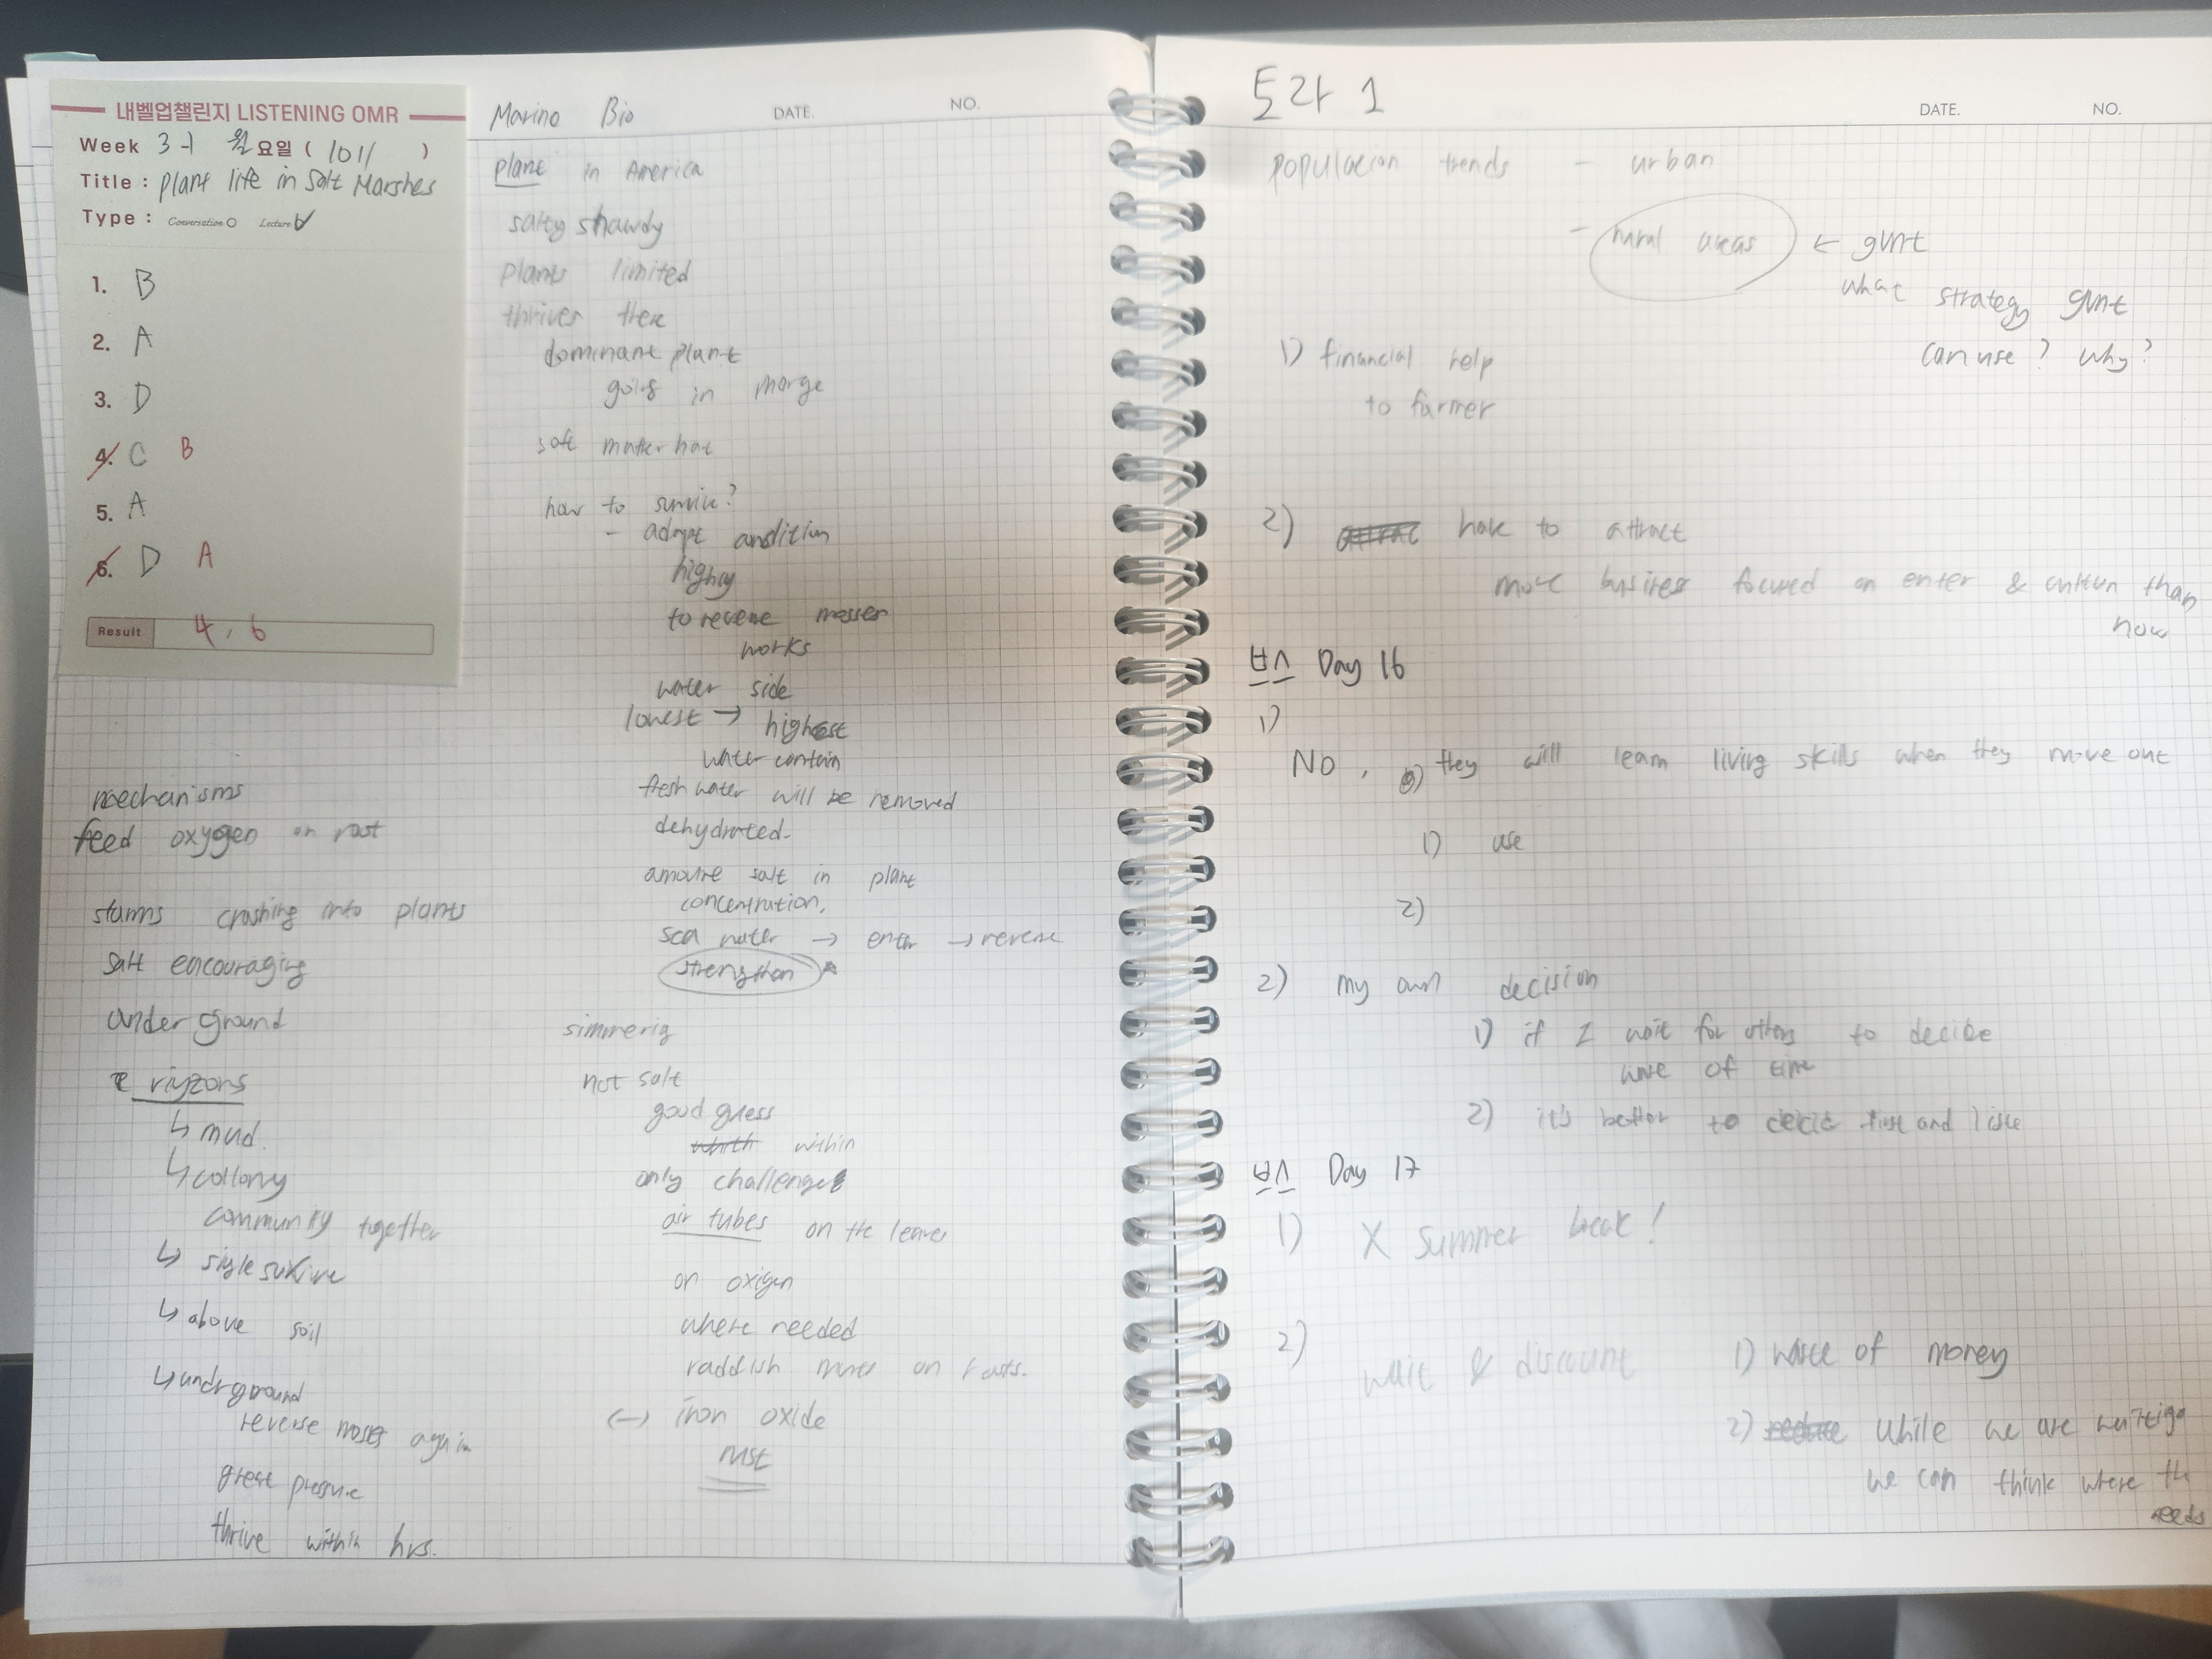 내벨업챌린지 LISTENING OMR
Week 3-1 월요일 ( 1011 )
Title : Plant life in Salt Marshes
Type : Conversation Lecture
1. B
2. A
3. D
4. C B
5. A
6. D A
Result 4, 6
mechanisms
feed oxygen on root
crashing into plants
Salt encouraging
under ground
riyzons
↳ mud
↳ collony
community together
↳
↳ above soil
↳ undrground
reverse again
great pressure
thrive within hrs.
Marino Bio DATE. NO.
plant in America
salty shawdy
plants limited
thrives there
dominant plant
going in marge
how to
- adapt condition
highly
to reverse
works
water side
lowest → highest
water contain
fresh water will be removed
dehydrated
amount salt in plant
concentration.
sea water → enter → reverse
strengthen
simmerig
not salt
good guess
within
only challenges
air tubes on the leaves
on oxigen
where needed
raddish on roots.
(-) iron oxide
rust
토라 1 DATE. NO.
population trends - urban
- rural areas ← gvnt
what strategy gvnt
can use? why?
1) financial help
to farmer
2) how to attract
more business focused on enter & culture than
now
버스 Day 16
1)
No, they will learn living skills when they move out
1) use
2)
2) my own decision
1) if I wait for others to decide
of time
2) it's better to decid first and
버스 Day 17
1) X Summer break!
2) wait & discount 1) waste of money
2) While we are waitiga
we can think where th
needs